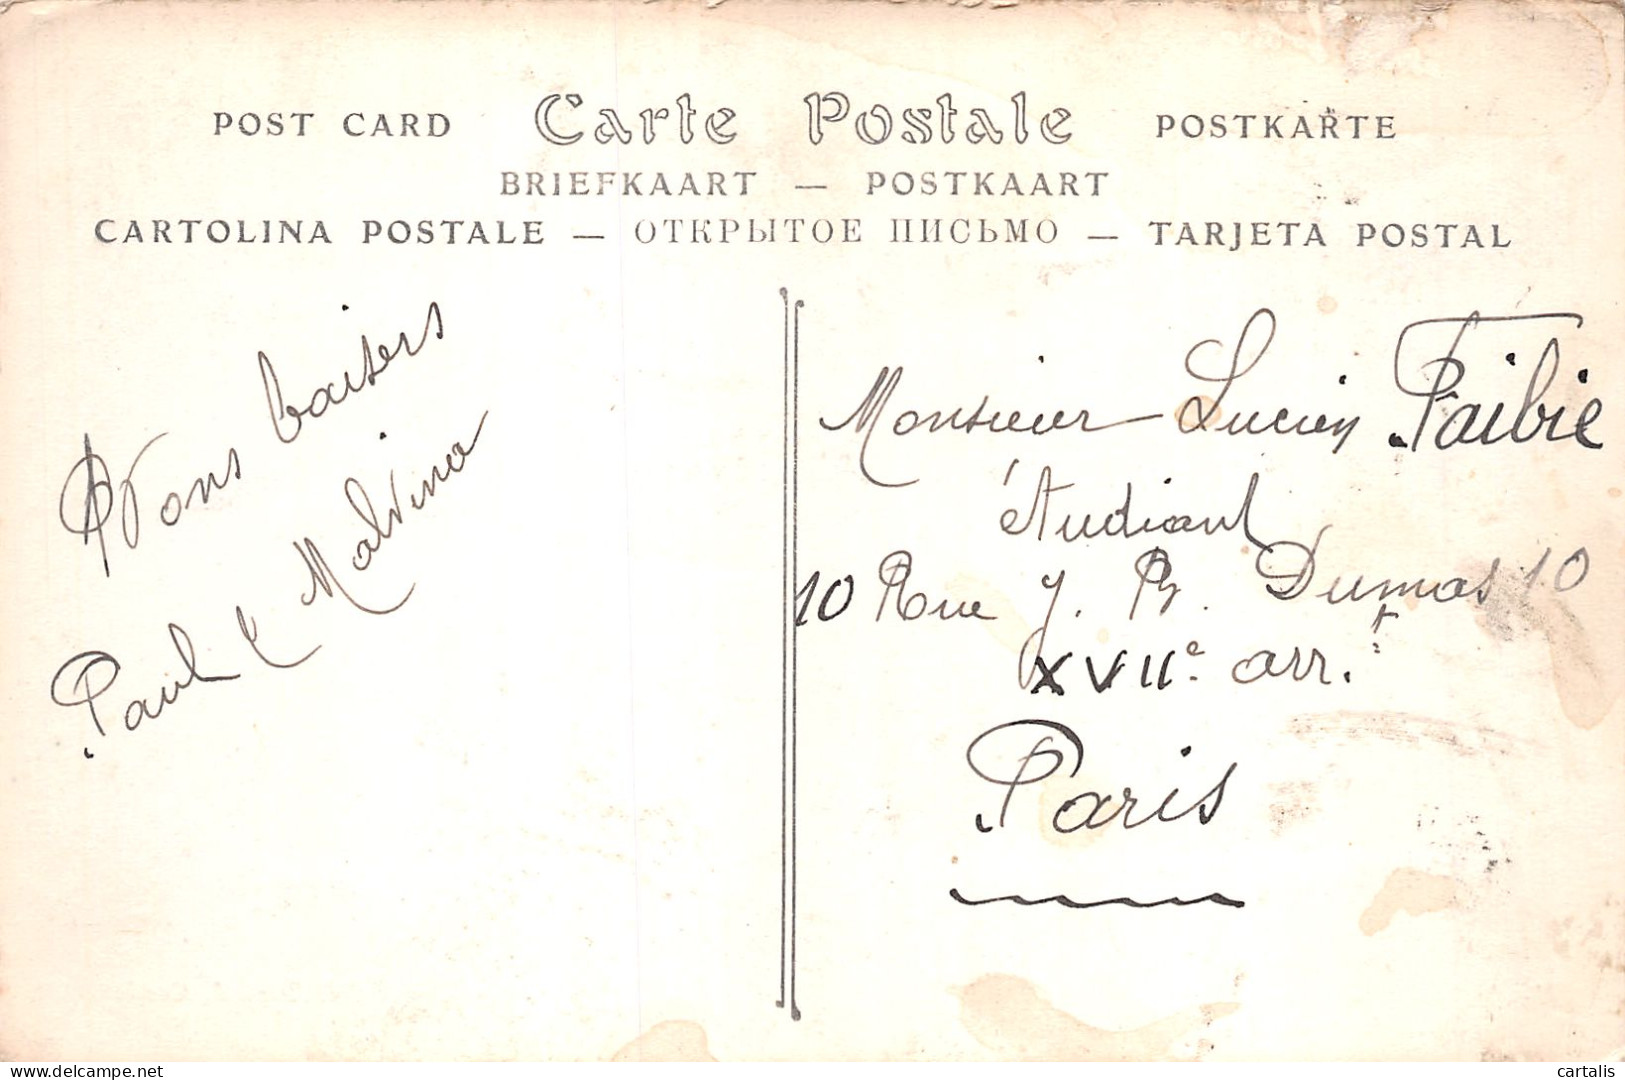 POST CARD Carte Postale POSTKARTE
BRIEFKAART — POSTKAART
CARTOLINA POSTALE — ОТКРЫТОЕ ПИСЬМО — TARJETA POSTAL
Bons baisers
Paul & Malvina
Monsieur Lucien Faibie
étudiant
10 Rue J. B. Dumas 10
XVIIe arr.t
Paris
delcampe.net
cartalis